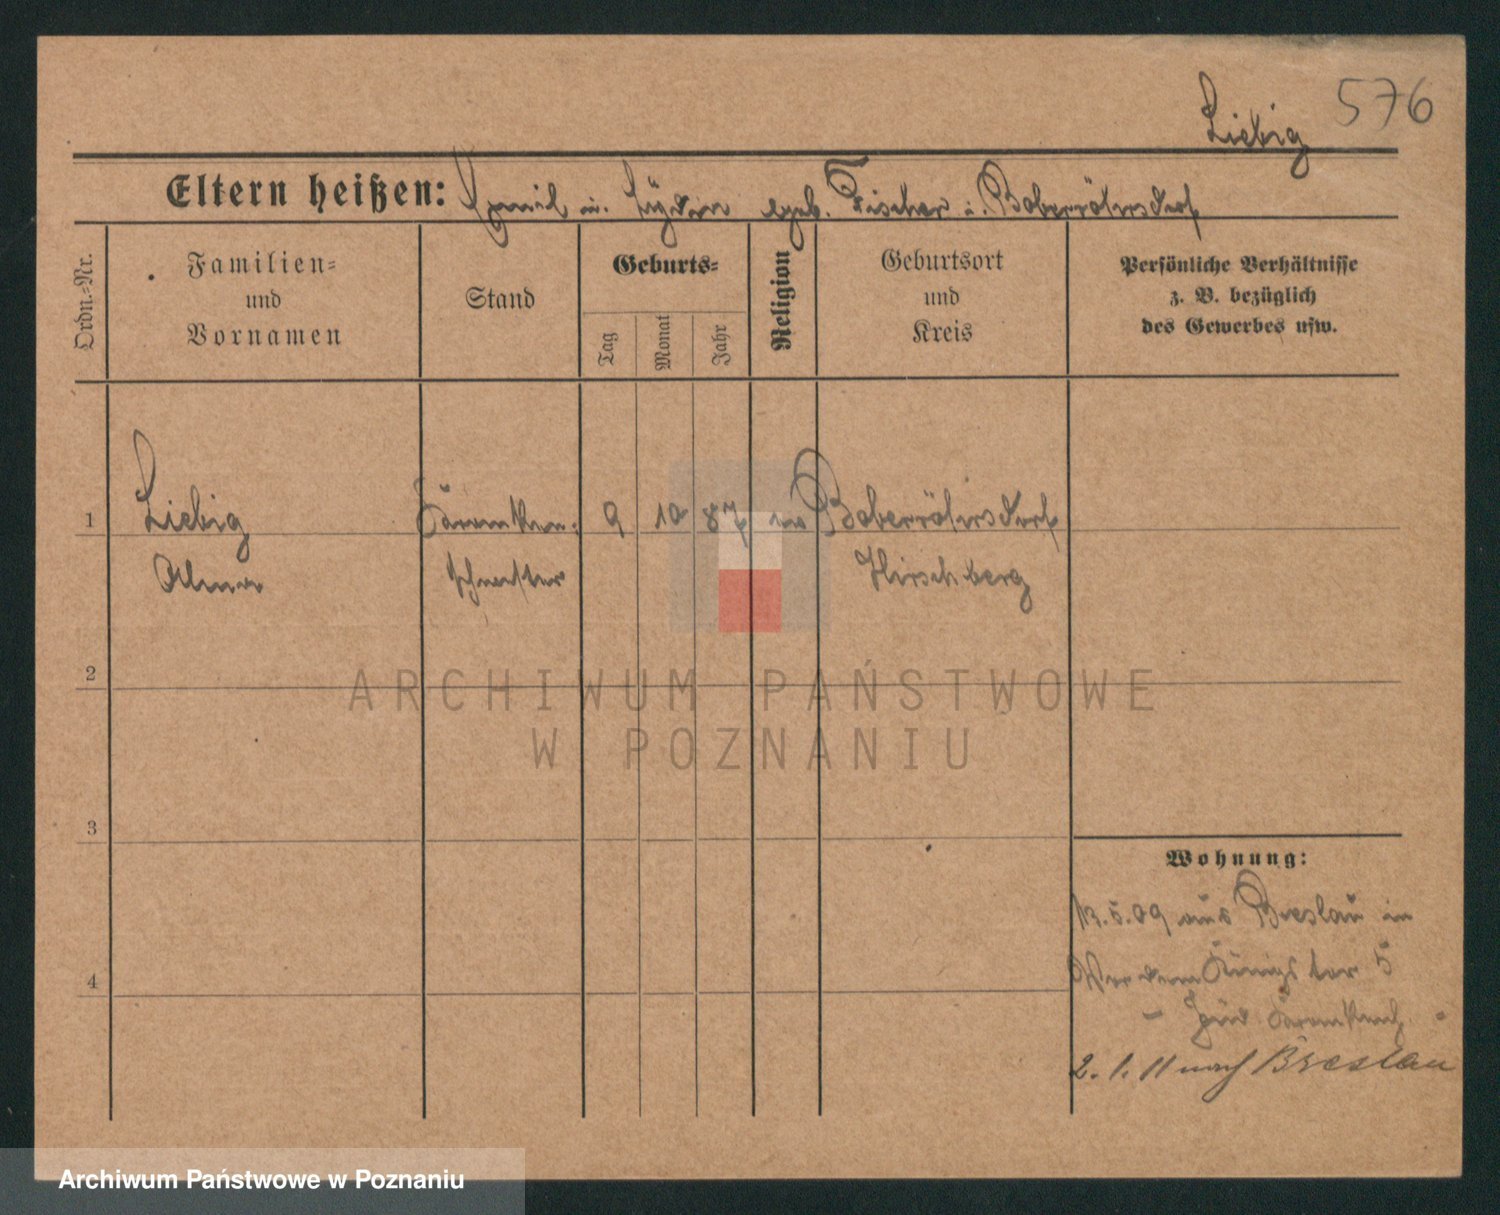 Liebig 576
Eltern heißen: Emil u. geb. Fischer i. Boberröhrsdorf
Ordn.-Nr.
Familien-
und
Vornamen
Stand
Geburts-
Tag
Monat
Jahr
Religion
Geburtsort
und
Kreis
Persönliche Verhältnisse
z. B. bezüglich
des Gewerbes usw.
1 Liebig Kranken- 9 10 87 ev Boberröhrsdorf
schwester Hirschberg
2
ARCHIWUM PAŃSTWOWE
W POZNANIU
3
Wohnung:
13.5.09 aus Breslau in
4
Vor dem Königstor 5
- Jüd. Krankenh. -
2.1.11 nach Breslau
Archiwum Państwowe w Poznaniu